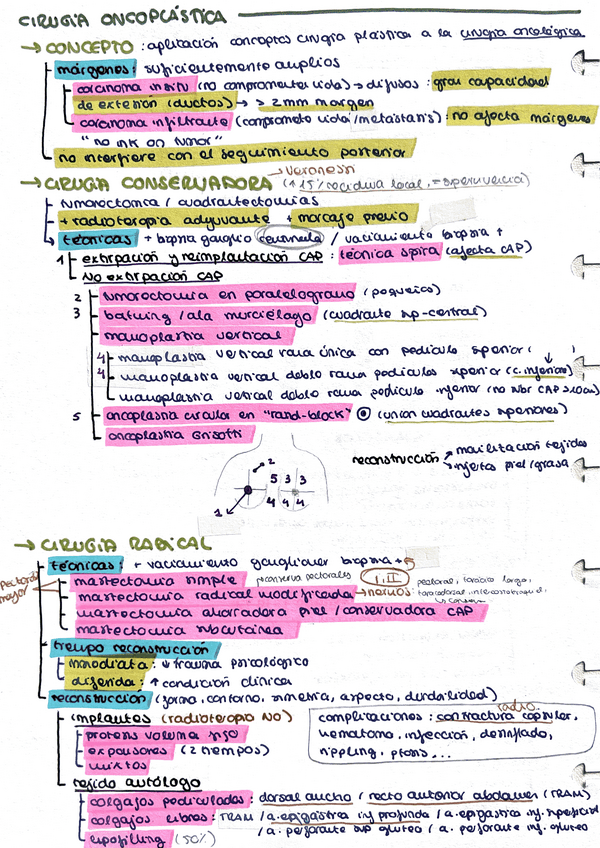 CIRUGÍA ONCOPLÁSTICA
→ CONCEPTO: aplicación conceptos cirugía plástica a la cirugía oncológica
márgenes: suficientemente amplios
carcinoma insitu (no compromete vida) → difusos: gran capacidad
de extensión (ductos) → > 2mm margen
carcinoma infiltrante (compromete vida/metástasis): no afecta márgenes
"no ink on tumor"
no interfiere con el seguimiento posterior
→ Veronessi
→ CIRUGÍA CONSERVADORA (↑15% recidiva local, = supervivencia)
tumorectomía / cuadrantectomías
+ radioterapia adyuvante + marcaje previo
técnicas + biopsia ganglio centinela / vaciamiento biopsia +
1 extirpación y reimplantación CAP: técnica spira (afecta CAP)
NO extirpación CAP
2 tumorectomía en paralelogramo (pequeños)
3 batwing / ala murciélago (cuadrante sup-central)
mamoplastia vertical
4 mamoplastia vertical rama única con pedículo superior ( ↓ )
4 mamoplastia vertical doble rama pedículos superior (c. inferior)
mamoplastia vertical doble rama pedículo inferior (no sobr CAP >10cm)
5 oncoplastia circular en "round-block" (unión cuadrantes superiores)
oncoplastia Grisotti
2
5 3 3
4 4 4
1
reconstrucción movilización tejidos
injertos piel/grasa
→ CIRUGÍA RADICAL
técnicas: + vaciamiento ganglionar biopsia +
pectoral mayor
mastectomía simple → conserva pectorales I, II pectoral, torácico largo,
mastectomía radical modificada → nervios: toracodorsal, intercostobraquial
→ conserva
mastectomía ahorradora piel / conservadora CAP
mastectomía subcutánea
tiempo reconstrucción
inmediata: ↓ trauma psicológico
diferida: ↑ condición clínica
reconstrucción (forma, contorno, simetría, aspecto, durabilidad)
implantes (radioterapia NO)
prótesis volumen fijo
expansores (2 tiempos)
mixtos
radio.
complicaciones: contractura capsular,
hematoma, infección, desinflado,
rippling, ptosis...
tejido autólogo
colgajos pediculados: dorsal ancho / recto anterior abdomen (TRAM)
colgajos libres: TRAM / a. epigástrica inf profunda / a. epigástrica inf. superficial
/ a. perforante sup glúteo / a. perforante inf. glúteo
lipofilling (50%)